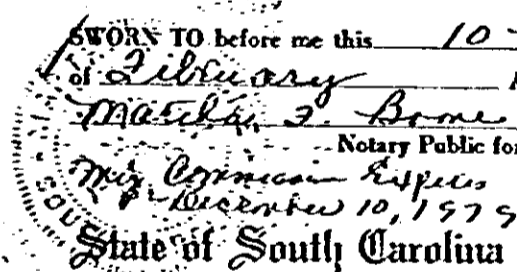 SWORN TO before me this 10
of February
Boone
Notary Public for
My Commission Expires
December 10, 1979
State of South Carolina